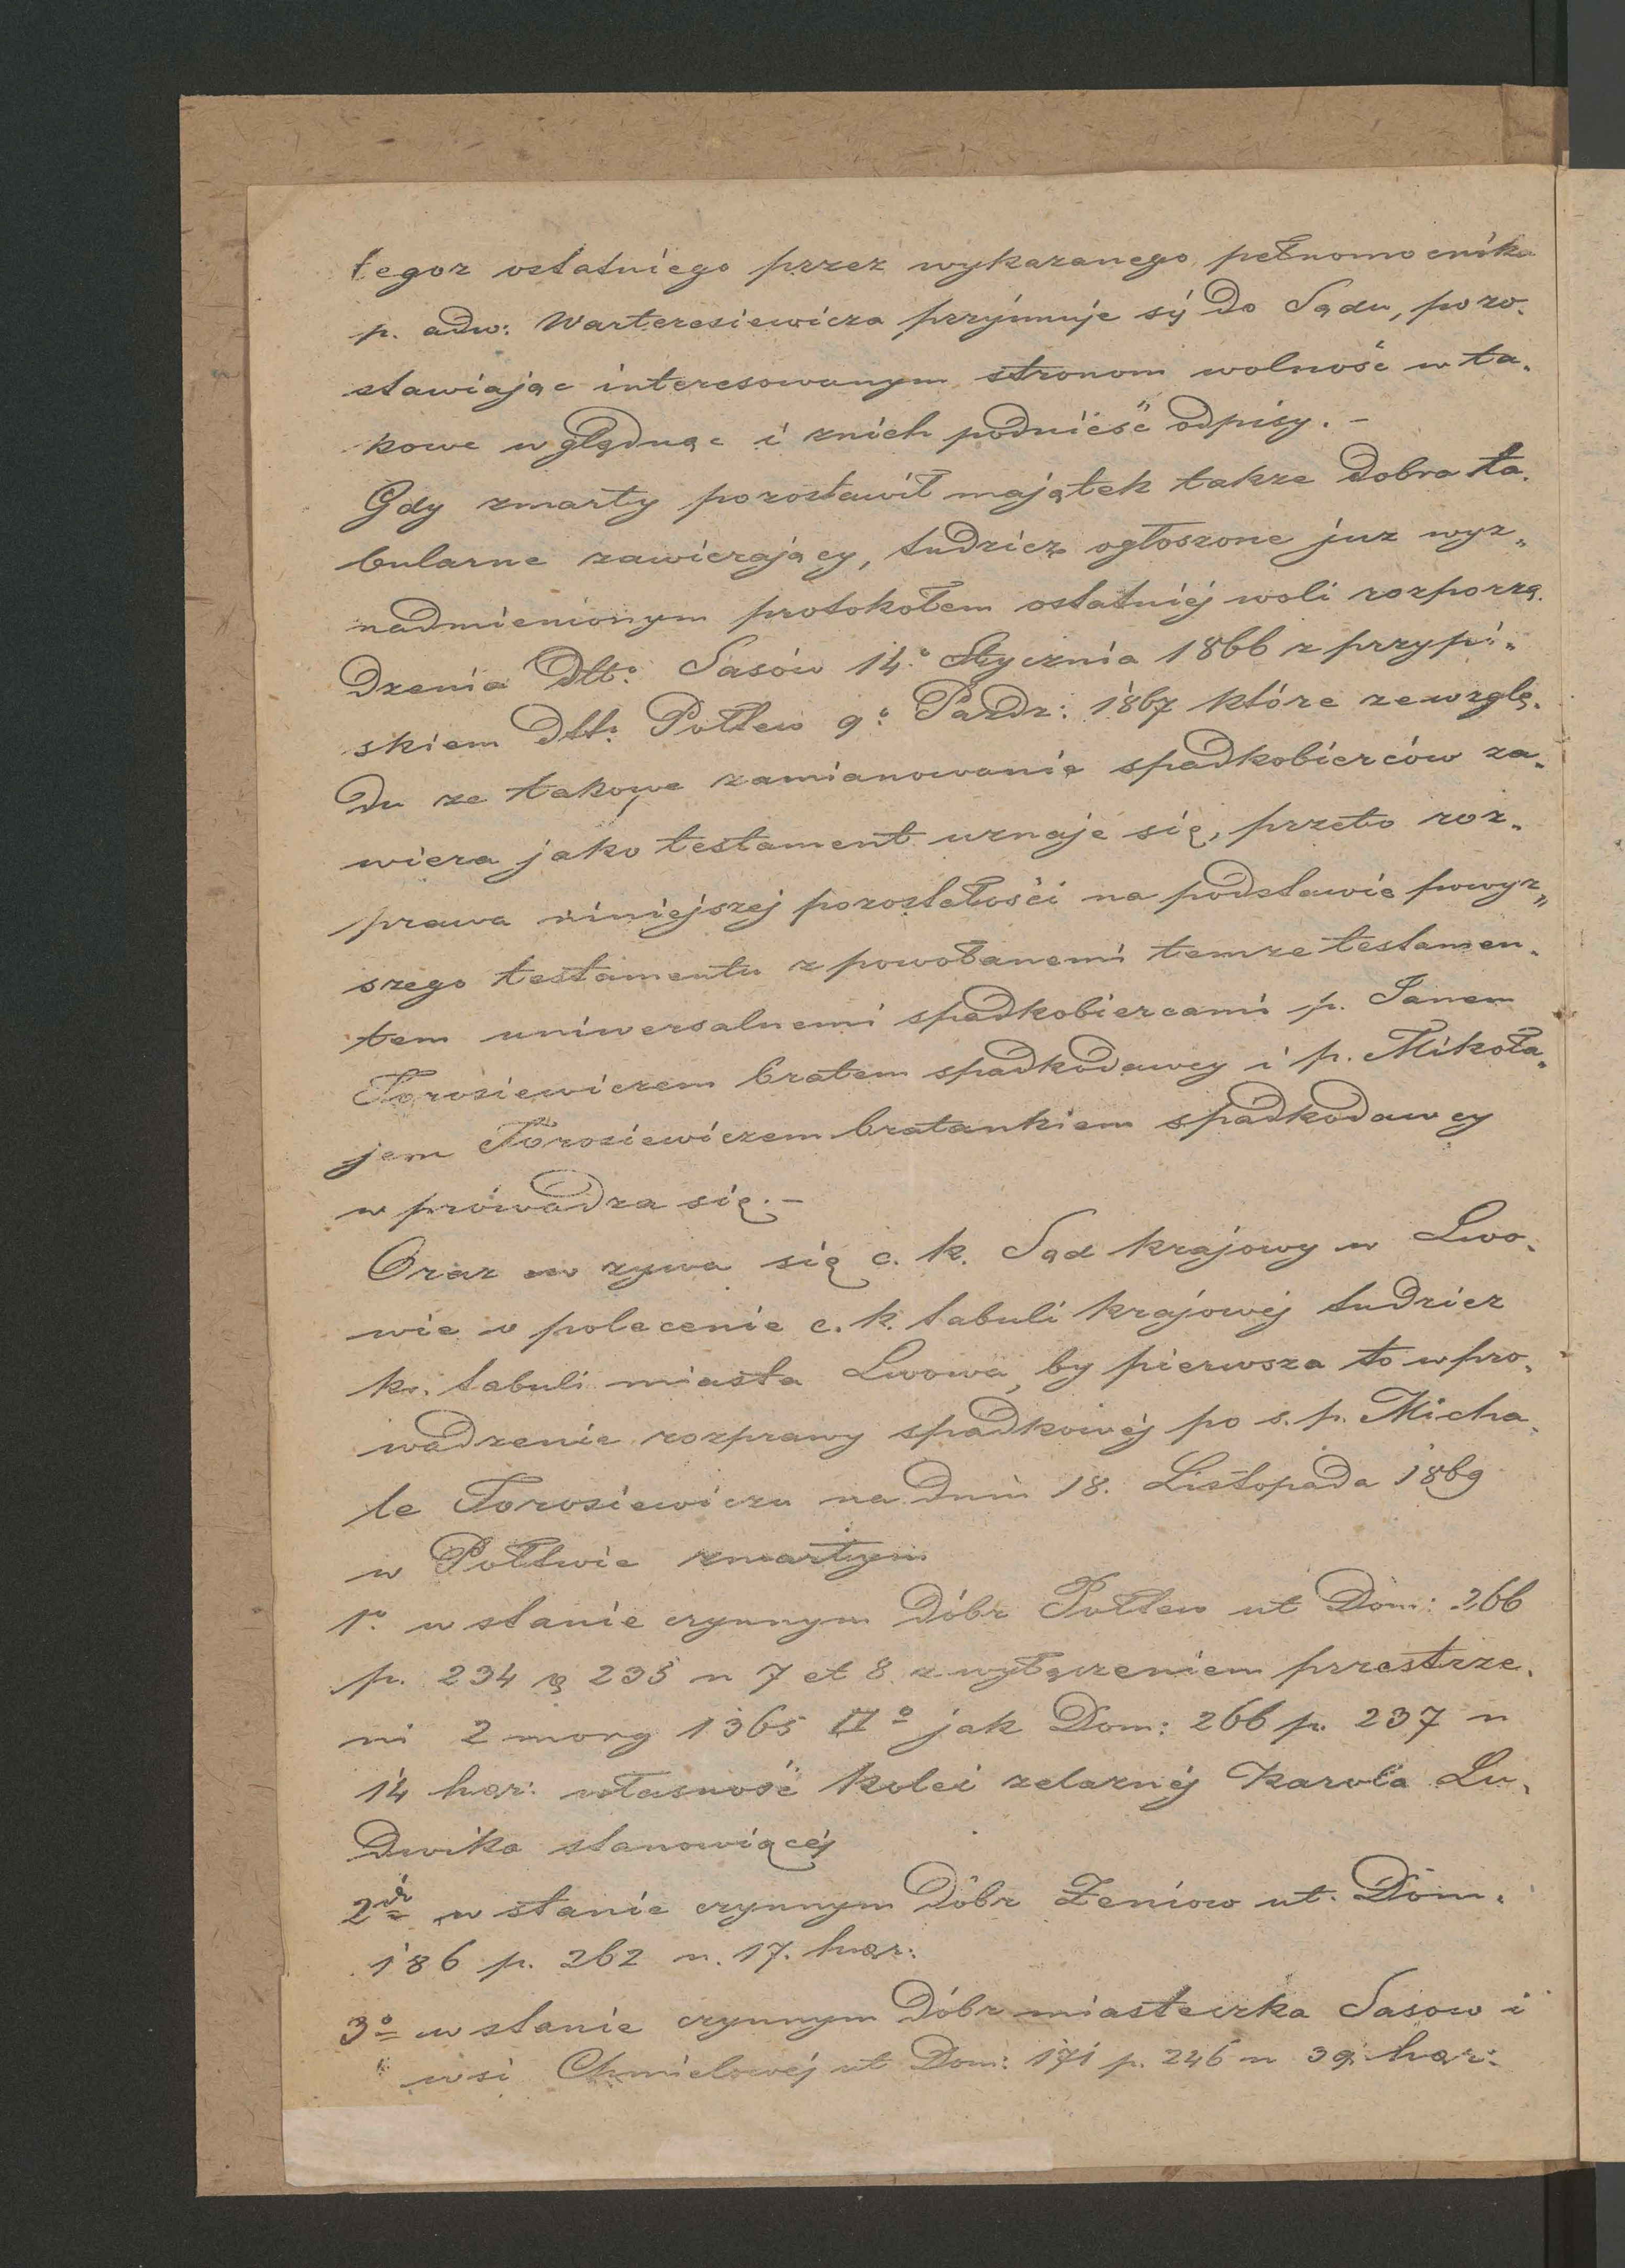 tegoz ostatniego przez wykazanego pełnomocnika
p. adw: Warteresiewicza przyjmuje sij do Sądu, pozo-
stawiając interesowanym stronom wolność w ta-
kowe wglądnąc i znich podnieść odpisy. -
Gdy zmarły pozostawił majątek takze dobra ta-
bularne zawierający, tudzież ogłoszone juz wyz„
nadmienionym protokołem ostatniej woli rozporzą-
dzenia dtto Sasów 14.° Stycznia 1866 z przypi-
skiem dtto Połtew 9° Pazdz: 1867 które zewzglę-
du ze takowe zamianowanie spadkobierców za-
wiera jako testament uznaje się, przeto roz-
prawa niniejszej pozostałości na podstawie powyz„
szego testamentu z powołanemi temze testamen-
tem uniwersalnemi spadkobiercami p. Janem
Torosiewiczem bratem spadkodawcy i p. Mikoła-
jem Torosiewiczem bratankiem spadkodawcy
wprowadza się. -
Oraz wzywa się c. k. Sąd krajowy w Lwo-
wie o polecenie c. k. tabuli krajowej tudziez
kr. tabuli miasta Lwowa, by pierwsza to wpro-
wadzenie rozprawy spadkowej po s. p. Micha-
le Torosiewiczu na dniu 18. Listopada 1869
w Połtwie zmarłym
1° w stanie czynnym Dóbr Połtew ut Dom: 266
p. 234 & 235 n 7 et 8 z wyłączeniem przestrze-
ni 2 morg 1365 □° jak Dom: 266 p. 237 n
14 haer: własność kolei zelaznéj Karola Lu-
dwika stanowiącéj
2do w stanie czynnym Dóbr Zeniow ut. Dom.
186 p. 262 n. 17. haer:
3° w stanie czynnym Dóbr miasteczka Sasow i
wsi Chmielowéj ut Dom: 171 p. 246 n 39. haer: